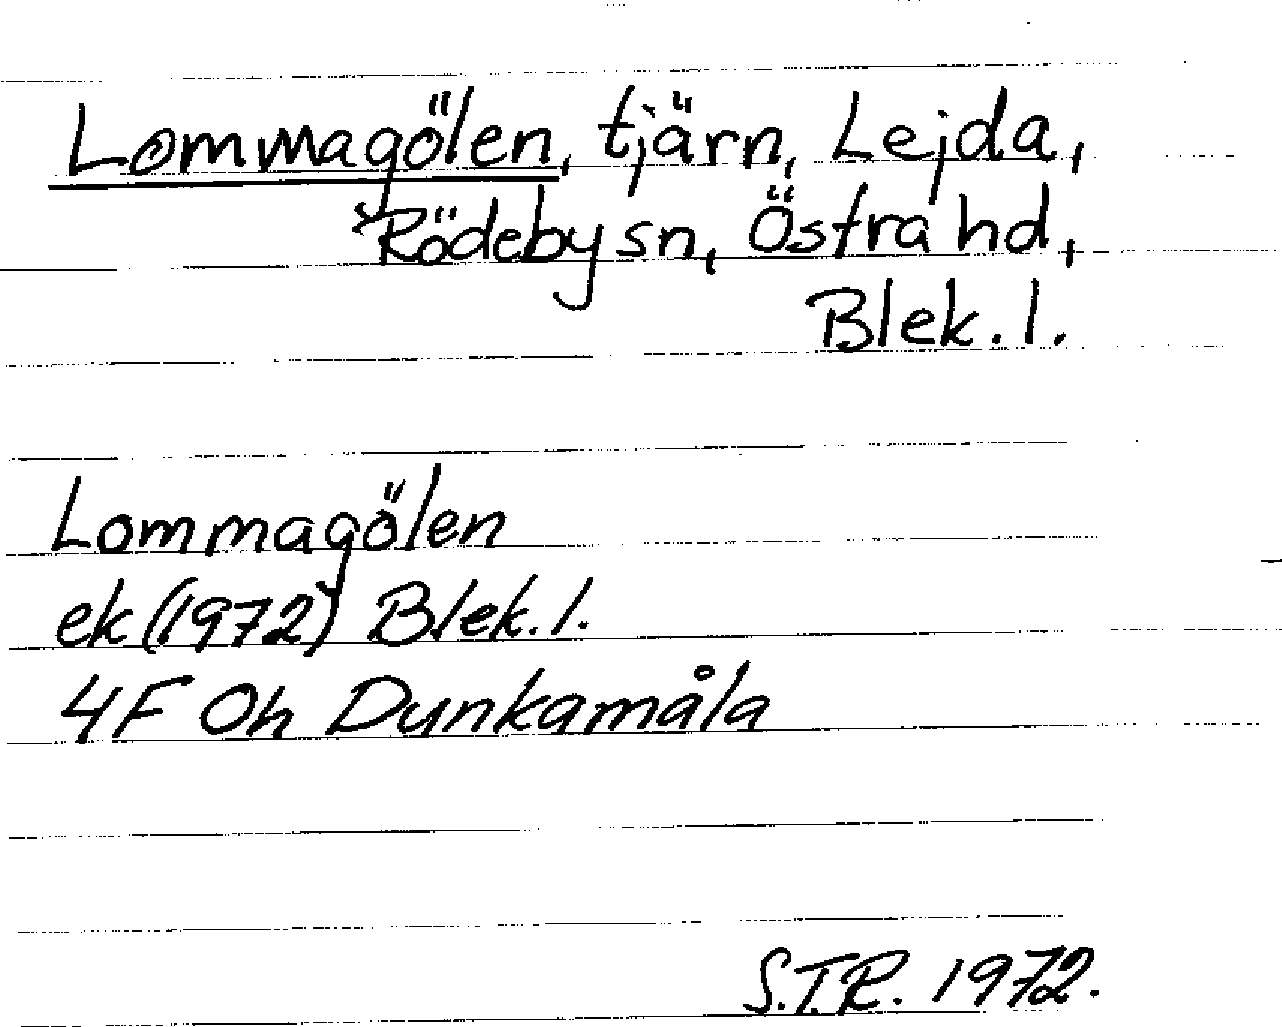 Lommagölen, tjärn, Lejda,
Rödeby sn, Östra hd,
Blek. l.
Lommagölen
ek (1972) Blek. l.
4F 0h Dunkamåla
S.T.R. 1972.